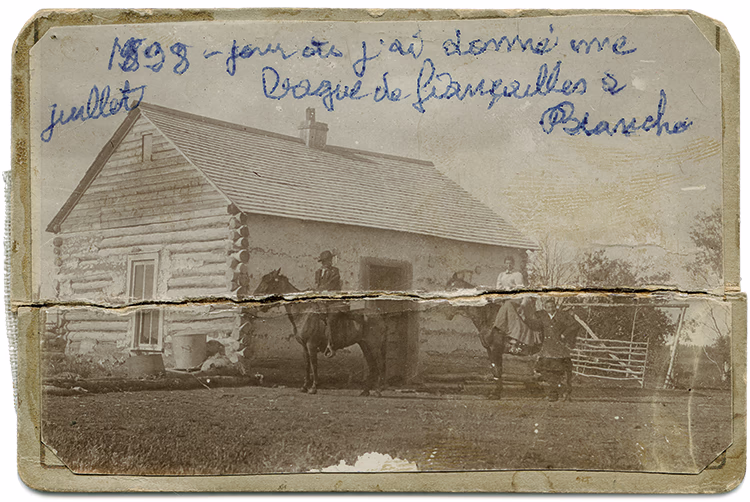 1898 - jour où j'ai donné une
juillet Drague de fiançailles à
Blanche